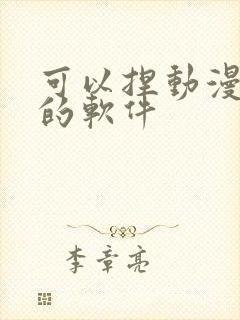 可以捏動漫
的軟件
李章亮